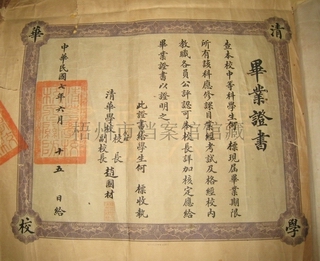 清華學校
畢業證書
查本校中等科學生何 樑現屆畢業期限
所有該科應修課目業經考試及格經校內
教職各員公評認可本校長詳加核定應給
畢業證書以證明之
此證書給學生何 樑收執
清華學校校長
副校長趙國材
中華民國七年六月十五日給
梧州市档案馆馆藏